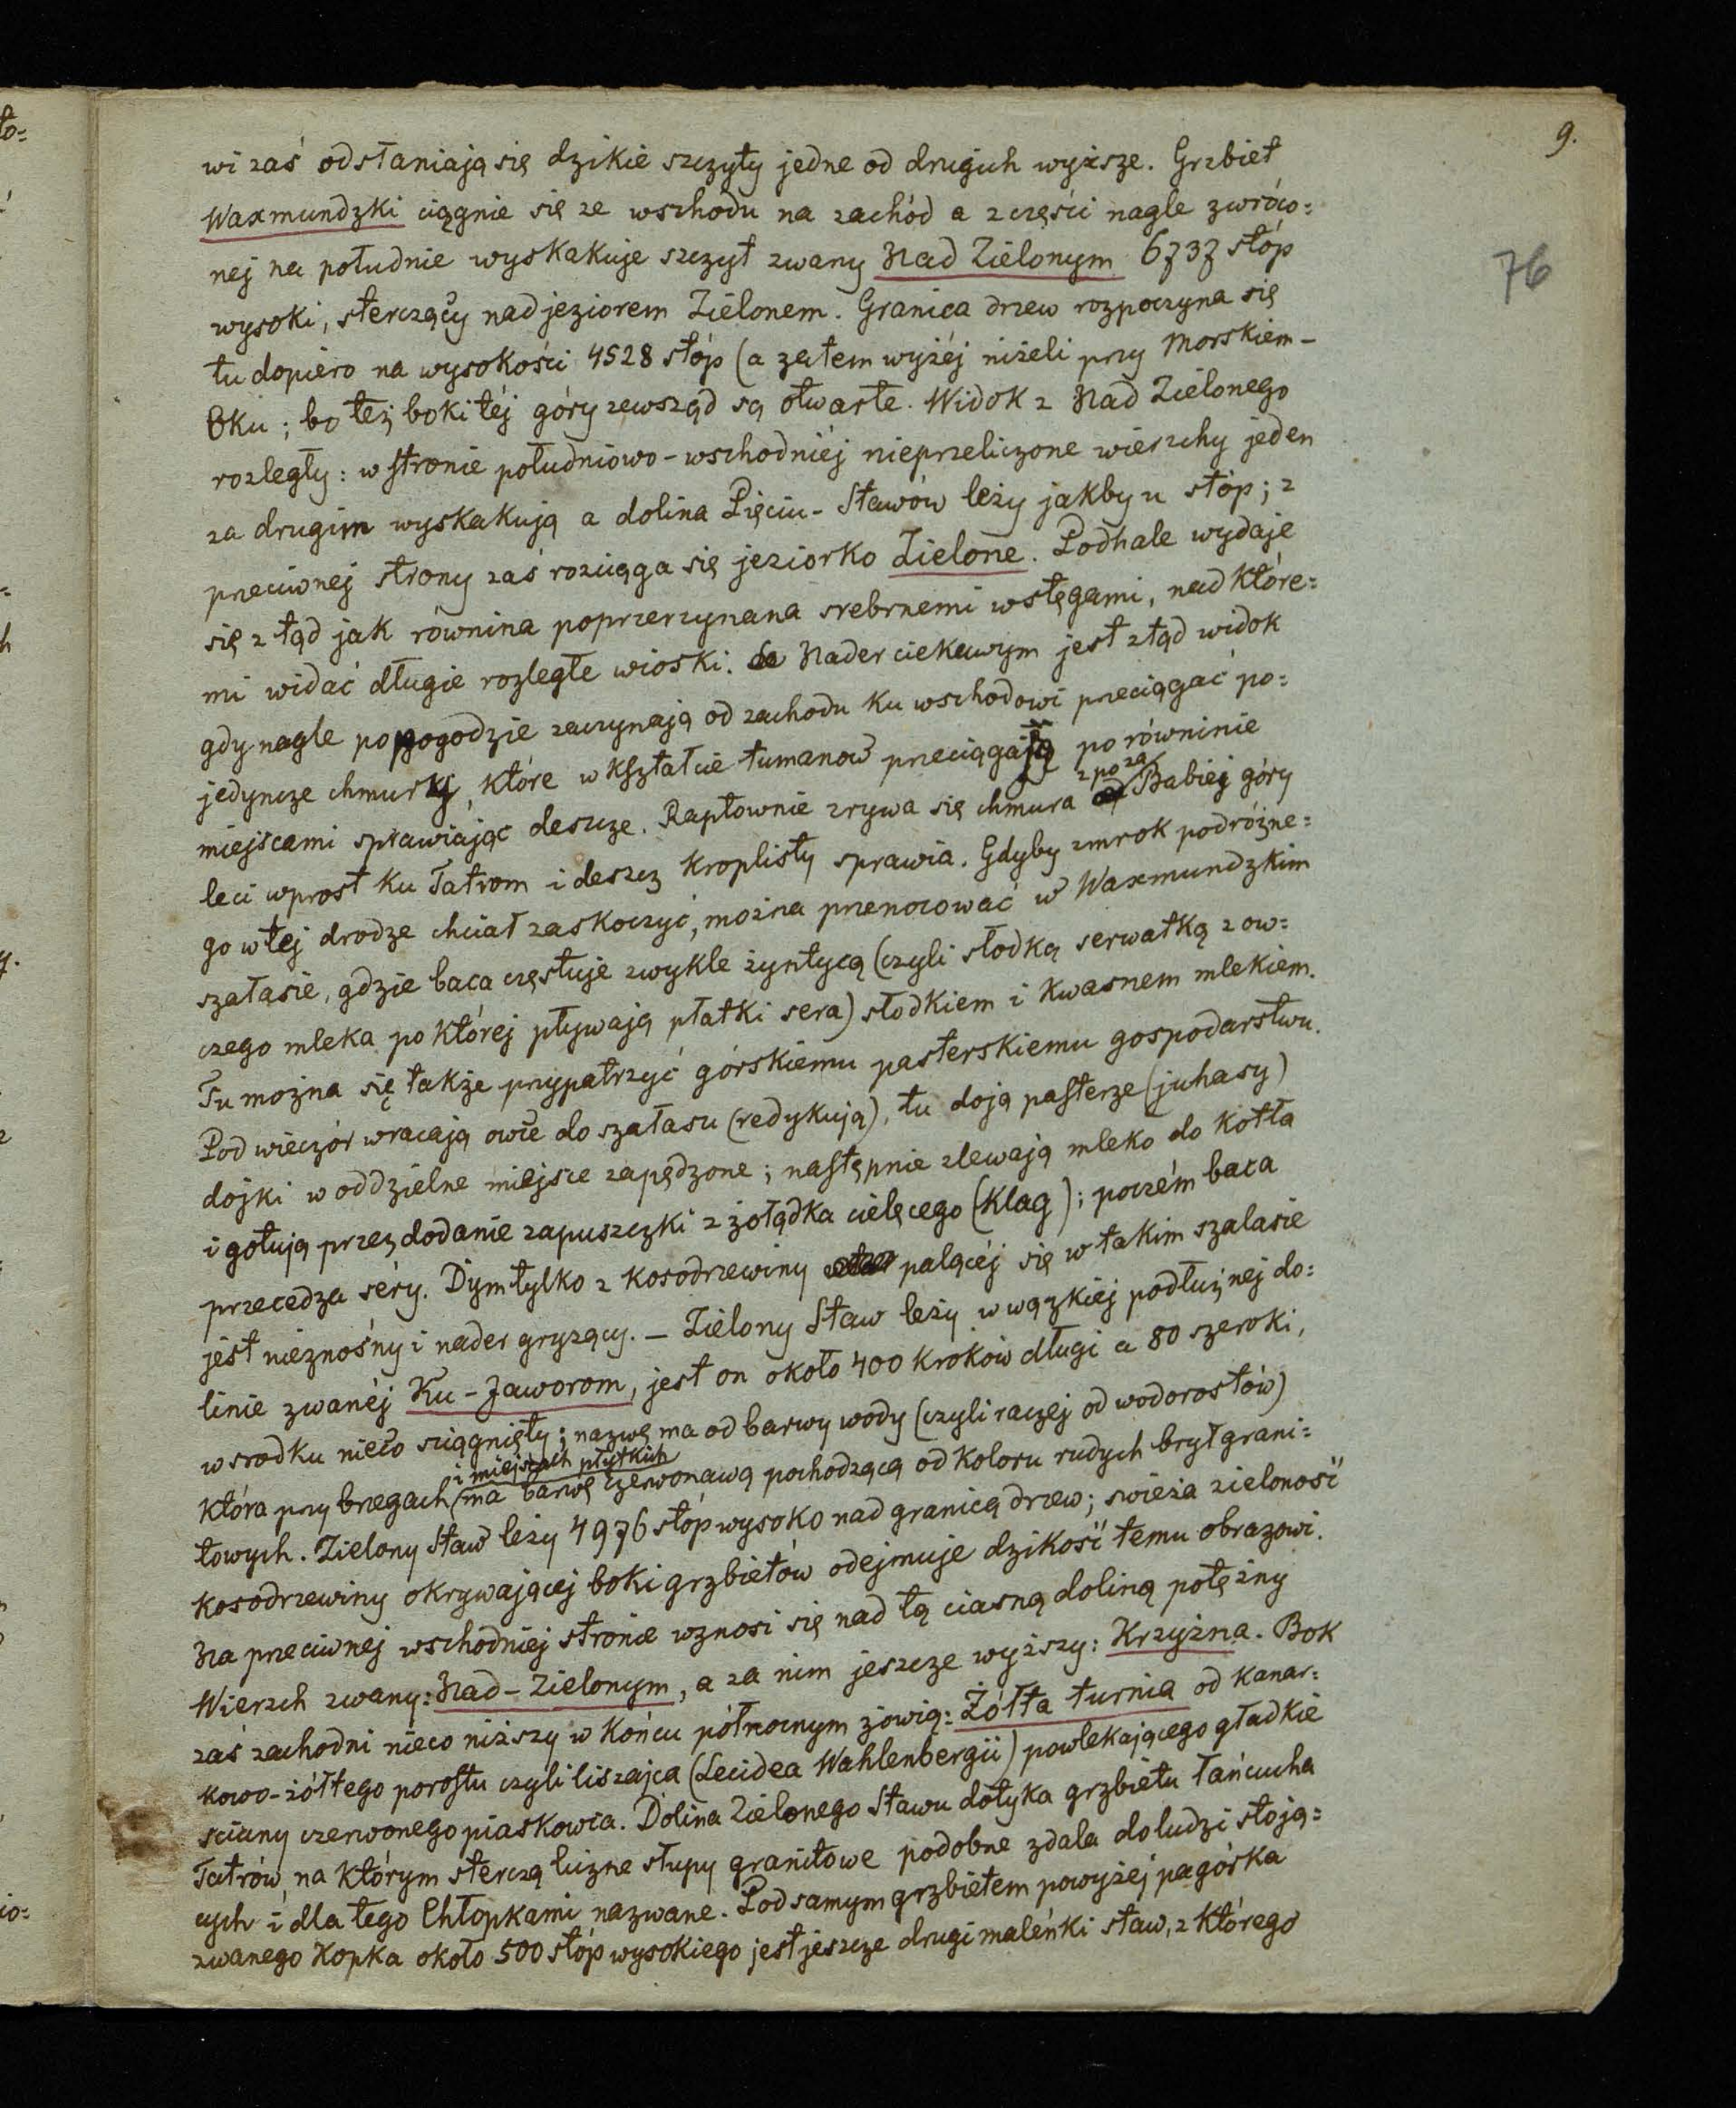 9.
76
wi zaś odsłaniają się dzikie szczyty jedne od drugich wyższe. Grzbiet
Waxmundzki ciągnie się ze wschodu na zachód a z części nagle zwróco=
nej na południe wyskakuje szczyt zwany Nad Zielonym 6737 stóp
wysoki, sterczący nad jeziorem Zielonem. Granica drzew rozpoczyna się
tu dopiero na wysokości 4528 stóp (a zatem wyżéj niżeli przy Morskiem-
Oku; bo też boki téj góry zewsząd są otwarte. Widok z Nad Zielonego
rozległy: w stronie południowo-wschodniéj nieprzeliczone wierzchy jeden
za drugim wyskakują a dolina Pięciu-Stawów leży jakby u stóp; z
przeciwnej strony zaś rozciąga się jeziorko Zielone. Podhale wydaje
się z tąd jak równina poprzerzynana srebrnemi wstęgami, nad któré=
mi widać długie rozległe wioski. Nader ciekawym jest ztąd widok
gdy nagle po pogodzie zaczynają od zachodu ku wschodowi przeciągać po=
jedyncze chmurki, które w kształcie tumanów przeciągają po równinie
miejscami sprawiając deszcze. Raptownie zrywa się chmura z po za Babiej góry
leci wprost ku Tatrom i deszcz kroplisty sprawia. Gdyby zmrok podróżne=
go w tej drodze chciał zaskoczyć, można przenocować w Waxmundzkim
szałasie, gdzie baca częstuje zwykle żyntycą (czyli słodką serwatką z ow=
czego mleka po której pływają płatki sera) słodkiem i kwasnem mlekiem.
Tu można się także przypatrzyć górskiemu pasterskiemu gospodarstwu.
Pod wieczór wracają owce do szałasu (redykują), tu doją pasterze (juhasy)
dojki w oddzielne miejsce zapędzone; następnie zlewają mleko do kotła
i gotują przez dodanie zapuszczki z żołądka cielęcego (klag); poczém baca
przecedza séry. Dym tylko z kosodrzewiny palącéj się w takim szalasie
jest nieznośny i nader gryzący. – Zielony Staw leży w wązkiéj podłużnej do=
linie zwanéj Ku-Jaworom, jest on około 400 kroków długi a 80 szeroki,
w srodku nieco sciągnięty; nazwę ma od barwy wody (czyli raczej od wodorostów)
która przy bregach i miejscach płytkich ma barwę czerwonawą pochodzącą od koloru rudych brył grani=
towych. Zielony Staw leży 4976 stóp wysoko nad granicą drzew; swieża zieloność
kosodrzewiny okrywającej boki grzbietów odejmuje dzikość temu obrazowi.
Na przeciwnej wschodniej stronie wznosi się nad tą ciasną doliną potężny
Wierzch zwany: Nad-Zielonym, a za nim jeszcze wyższy: Krzyżna. Bok
zaś zachodni nieco niższy w końcu północnym zowią: Żółta turnia od kanar=
kowo-żółtego porostu czyli liszajca (Lecidea Wahlenbergii) powlekającego gładkie
sciany czerwonego piaskowca. Dolina Zielonego Stawu dotyka grzbietu łańcucha
Tatrów, na którym sterczą liczne słupy granitowe podobne zdala do ludzi stoją=
cych i dla tego Chłopkami nazwane. Pod samym grzbietem powyżej pagórka
zwanego Kopka około 500 stóp wysokiego jest jeszcze drugi maleńki staw, z którego